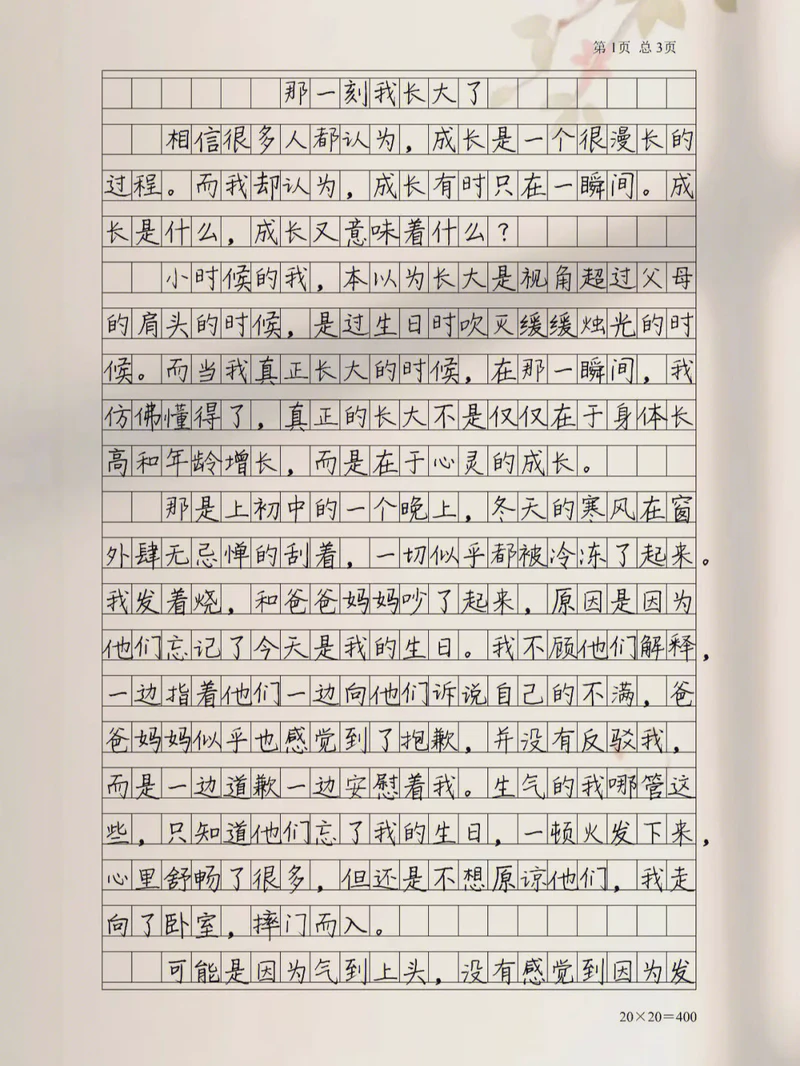 第1页 总3页
那一刻我长大了
相信很多人都认为，成长是一个很漫长的
过程。而我却认为，成长有时只在一瞬间。成
长是什么，成长又意味着什么？
小时候的我，本以为长大是视角超过父母
的肩头的时候，是过生日时吹灭缓缓烛光的时
候。而当我真正长大的时候，在那一瞬间，我
仿佛懂得了，真正的长大不是仅仅在于身体长
高和年龄增长，而是在于心灵的成长。
那是上初中的一个晚上，冬天的寒风在窗
外肆无忌惮的刮着，一切似乎都被冷冻了起来。
我发着烧，和爸爸妈妈吵了起来，原因是因为
他们忘记了今天是我的生日。我不顾他们解释，
一边指着他们一边向他们诉说自己的不满，爸
爸妈妈似乎也感觉到了抱歉，并没有反驳我，
而是一边道歉一边安慰着我。生气的我哪管这
些，只知道他们忘了我的生日，一顿火发下来，
心里舒畅了很多，但还是不想原谅他们，我走
向了卧室，摔门而入。
可能是因为气到上头，没有感觉到因为发
20×20=400